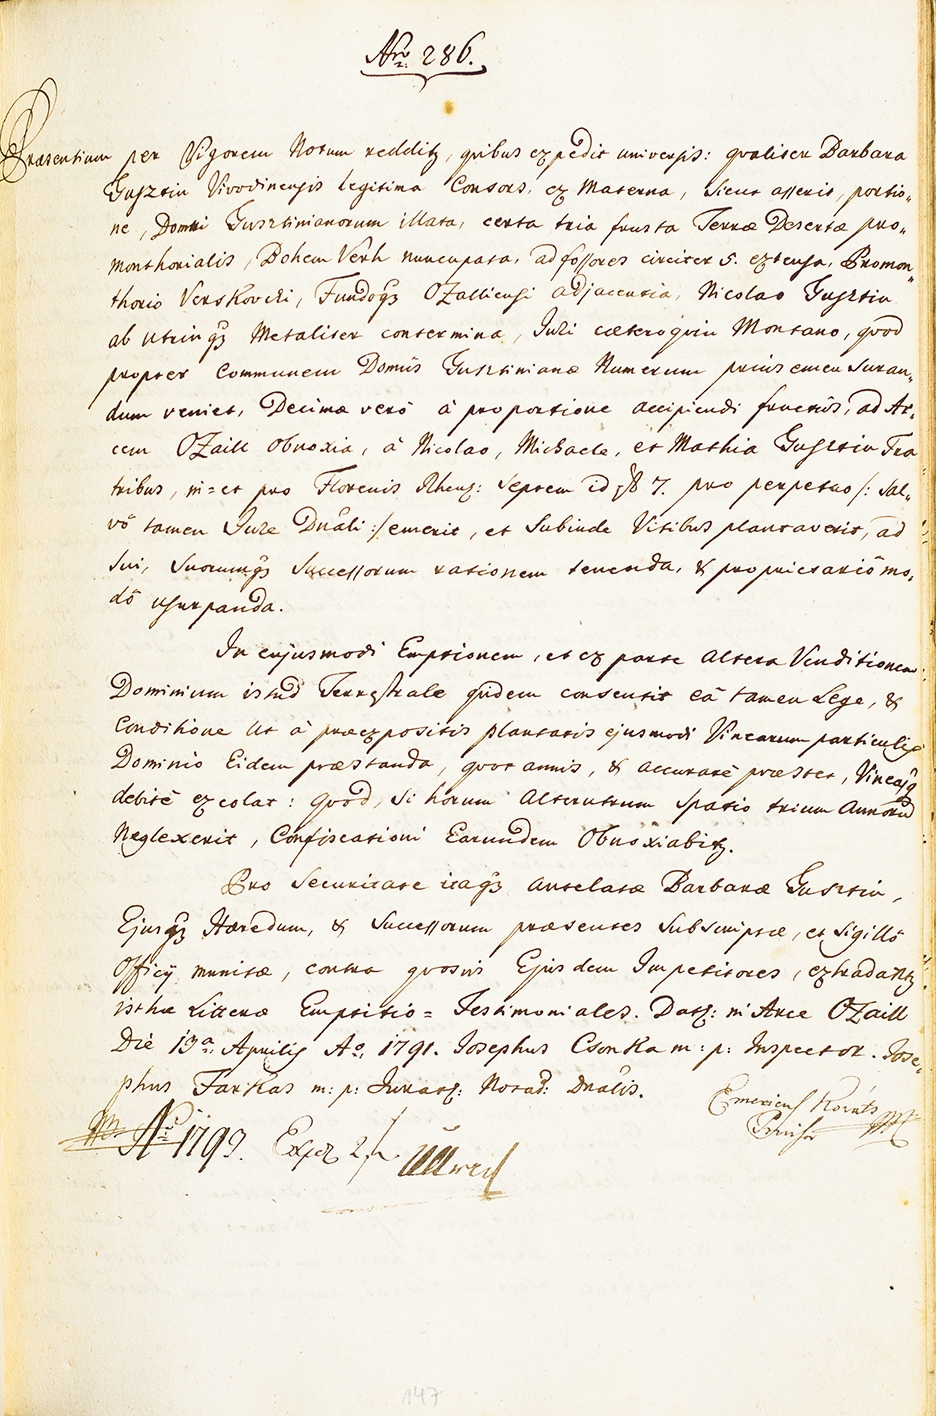 Nro 286.
Præsentium per Vigorem Notum redditq, quibus expedit universis: qualiter Barbara
Gusztin Vivodinensis legitima Consors, ex Materna, sicut asserit, portio„
ne, Domui Gusztinianorum illata, certa tria frusta Terræ Desertæ pro„
monthorialis, Dohem Verh nuncupata, ad fossores circiter 5. extensa, Promon„
thorio Verskovczi, Fundoq3 OZalliensi adjacentia, Nicolao Gusztin
ab utrinq3 Metaliter contermina, Juri cæteroquin Montano, quod
propter Communem Domûs Gusztinianæ Numerum prius emen suran„
dum veniet, Decimæ verò à proportione accipiendi fructûs, ad Ar„
cem OZaill Obnoxia, à Nicolao, Michaele, et Mathia Gusztin Fra
tribus, in= et pro Florenis Rhens: Septem id est 7. pro perpetuo /: sal„
vô tamen Jure Dnali :/ emerit, et subinde Vitibus plantaverit, ad
sui, suorumq3 Successorum rationem tenenda, & proprietariô mo„
dô usurpanda.
In cujusmodi Emptionem, et ex parte altera Venditionem
Dominium istud Terrestrale quidem consentit eâ tamen Lege, &
Conditione ut à præexpositis plantatis ejusmodi Vinearum particulis
Dominio Eidem præstanda, quot annis, & accuratè præstet, Vineasq3
debitè excolat: quod, si horum alterutrum spatio trium Annorum
Neglexerit, Confiscationi Earundem Obnoxiabitq.
Pro Securitate itaq3 antelatæ Barbaræ Gusztin,
Ejusq3 Hæredum, & Successorum præsentes Subscriptæ, et Sigillô
Officÿ munitæ, contra quosvis Ejusdem Impetitores, extradantq
isthæ Litteræ Emptitio= Testimoniales. Datq: in Arce OZaill
Die 13a Aprilis Ao. 1791. Josephus Csonka m: p: Inspector. Jose„
phus Farkas m: p: Juratq: Notaq: Dnalis.
Emericus Kováts
No 1793. Exp 2
147